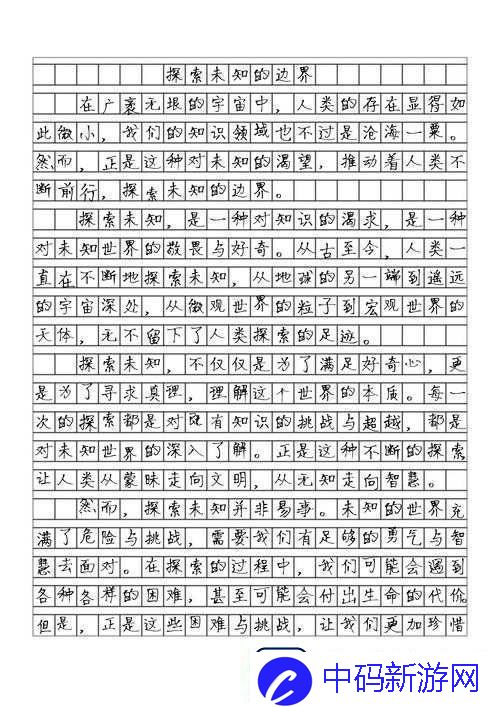 探索未知的边界
在广袤无垠的宇宙中，人类的存在显得如
此微小，我们的知识领域也不过是沧海一粟。
然而，正是这种对未知的渴望，推动着人类不
断前行，探索未知的边界。
探索未知，是一种对知识的渴求，是一种
对未知世界的敬畏与好奇。从古至今，人类一
直在不断地探索未知，从地球的另一端到遥远
的宇宙深处，从微观世界的粒子到宏观世界的
天体，无不留下了人类探索的足迹。
探索未知，不仅仅是为了满足好奇心，更
是为了寻求真理，理解这个世界的本质。每一
次的探索都是对既有知识的挑战与超越，都是
对未知世界的深入了解。正是这种不断的探索
让人类从蒙昧走向文明，从无知走向智慧。
然而，探索未知并非易事。未知的世界充
满了危险与挑战，需要我们有足够的勇气与智
慧去面对。在探索的过程中，我们可能会遇到
各种各样的困难，甚至可能会付出生命的代价。
但是，正是这些困难与挑战，让我们更加珍惜
中码新游网